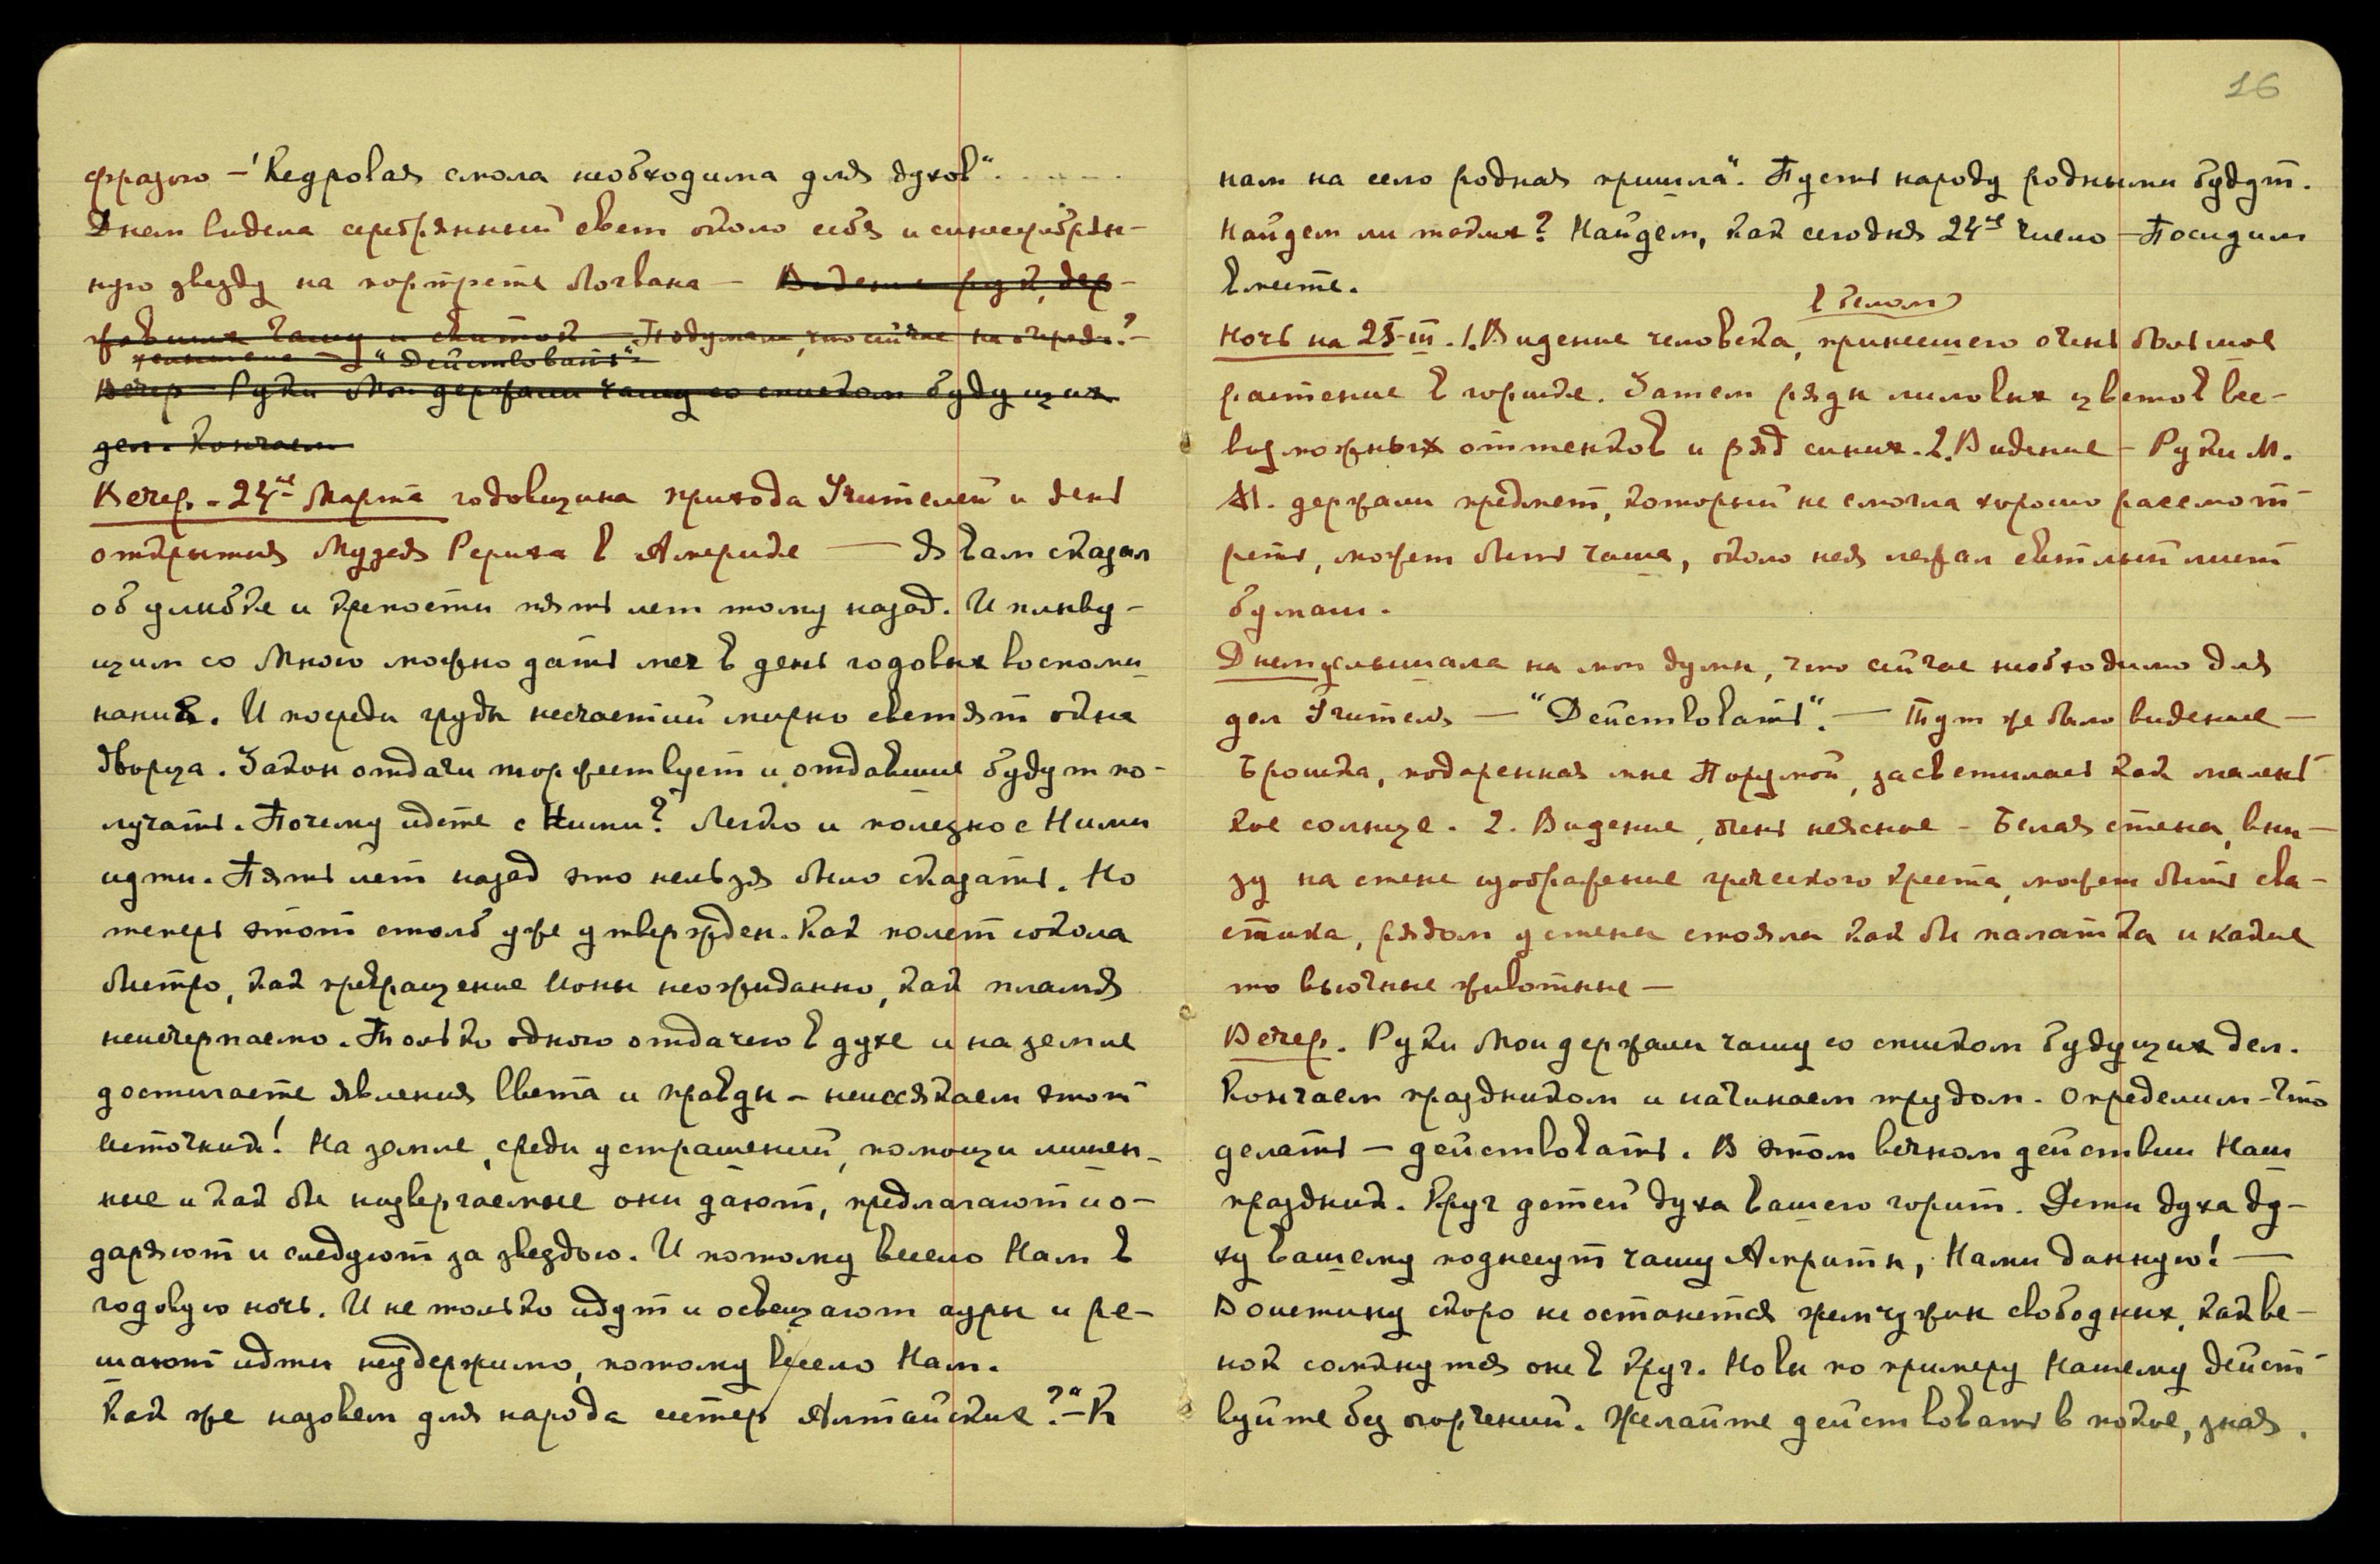 фразою — "Кедровая смола необходима для духов". . . . . .
Днем видела серебрянный свет около себя и синесеребрян-
ную звезду на портрете Логвана — Видение рук, дер-
жавших чашу и свиток — Подумала, что сейчас на очереди? —
"Действовать"
Вечер Руки Мои держали чашу со списком будущих
дел. Кончаем
Вечер. - 24ое Марта годовщина прихода Учителей и день
открытия Музея Рериха в Америке — Я вам сказал
об улыбке и крепости пять лет тому назад. И плыву-
щим со Мною можно дать меч в день годовых воспоми-
наний. И посреди груды несчастий мирно светят окна
дворца. Закон отдачи торжествует и отдавшие будут по-
лучать. Почему идете с Ними? Легко и полезно с Ними
идти. Пять лет назад это нельзя было сказать. Но
теперь этот столб уже утвержден. Как полет сокола
быстро, как превращение Ионы неожиданно, как пламя
неисчерпаемо. Только одною отдачею в духе и на земле
достигаете явления Света и правды - неиссякаем этот
источник! На земле, среди устрашений, помощи лишен-
ные и как бы низвергаемые они дают, предлагают и о-
даряют и следуют за звездою. И потому весело Нам в
годовую ночь. И не только идут и освещают ауры и ре-
шают идти неудержимо, потому весело Нам.
Как же назовем для народа сестер Алтайских?"- К
16
нам на село родная пришла". Пусть народу родными будут.
Найдем ли таких? Найдем, как сегодня 24ое число - Посидим
вместе.
в белом
Ночь на 25-III. 1. Видение человека, принесшего очень большое
растение в горшке. Затем ряды лиловых цветов все-
возможных оттенков и ряд синих. 2. Видение - Руки М.
М. держали предмет, который не смогла хорошо рассмот-
реть, может быть чаша, около нея лежал светлый лист
бумаги.
Днем услышала на мои думы, что сейчас необходимо для
дел Учителя — "Действовать". — Тут же было видение —
Брошка, подаренная мне Порумой, засветилась как малень-
кое солнце. 2. Видение, очень неясное - Белая стена, вни-
зу на стене изображение греческого креста, может быть сва-
стика, рядом у стены стояла как бы палатка и какие
то вьючные животные —
Вечер. Руки Мои держали чашу со списком будущих дел.
Кончаем праздником и начинаем трудом. Определим - что
делать — действовать. В этом вечном действии Наш
праздник. Круг детей духа вашего горит. Дети духа ду-
ху вашему поднесут чашу Амриты, Нами данную! —
Воистину скоро не останется жемчужин свободных, как ве-
нок сомкнутся они в круг. Но вы по примеру Нашему дейст-
вуйте без огорчений. Желайте действовать в покое, зная,